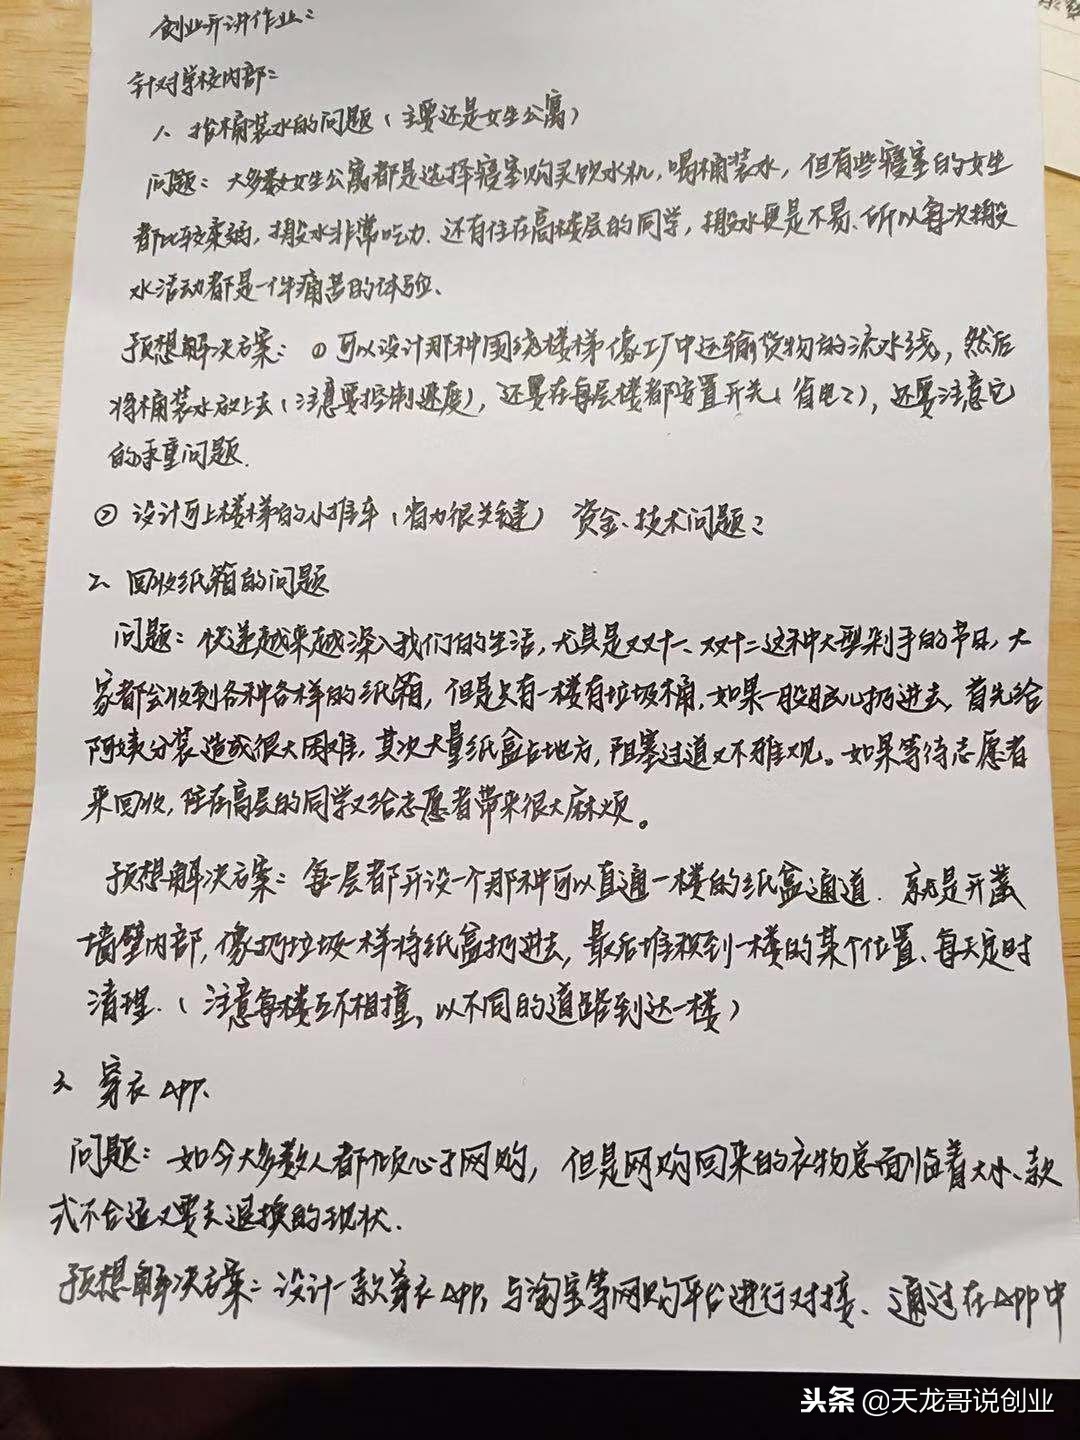 创业开讲作业:
针对学校内部:
1、抬桶装水的问题(主要还是女生公寓)
问题:大多数女生公寓都是选择寝室购买饮水机,喝桶装水,但有些寝室的女生
都比较柔弱,搬水非常吃力.还有住在高楼层的同学,搬水更是不易.所以每次搬
水活动都是一件痛苦的体验、
预想解决方案:①可以设计那种围绕楼梯像工厂中运输货物的流水线,然后
将桶装水放上去(注意要控制速度),还要在每层楼都安置开关(省电),还要注意它
的承重问题.
②设计可上楼梯的小推车(省力很关键) 资金、技术问题?
2、回收纸箱的问题
问题:快递越来越深入我们的生活,尤其是双十一、双十二这种大型剁手的节日,大
家都会收到各种各样的纸箱,但是只有一楼有垃圾桶,如果一股脑儿扔进去,首先给
阿姨分装造成很大困难,其次大量纸盒占地方,阻塞过道又不雅观。如果等待志愿者
来回收,住在高层的同学又给志愿者带来很大麻烦。
预想解决方案:每一层都开设一个那种可以直通一楼的纸盒通道.就是开凿
墙壁内部,像扔垃圾一样将纸盒扔进去,最后堆积到一楼的某个位置、每天定时
清理.(注意每楼互不相撞,以不同的道路到达一楼)
3、穿衣APP、
问题:如今大多数人都倾心于网购,但是网购回来的衣物总面临着大小、款
式不合适又要去退换的现状.
预想解决方案:设计一款穿衣APP,与淘宝等网购平台进行对接、通过在APP中
头条@天龙哥说创业